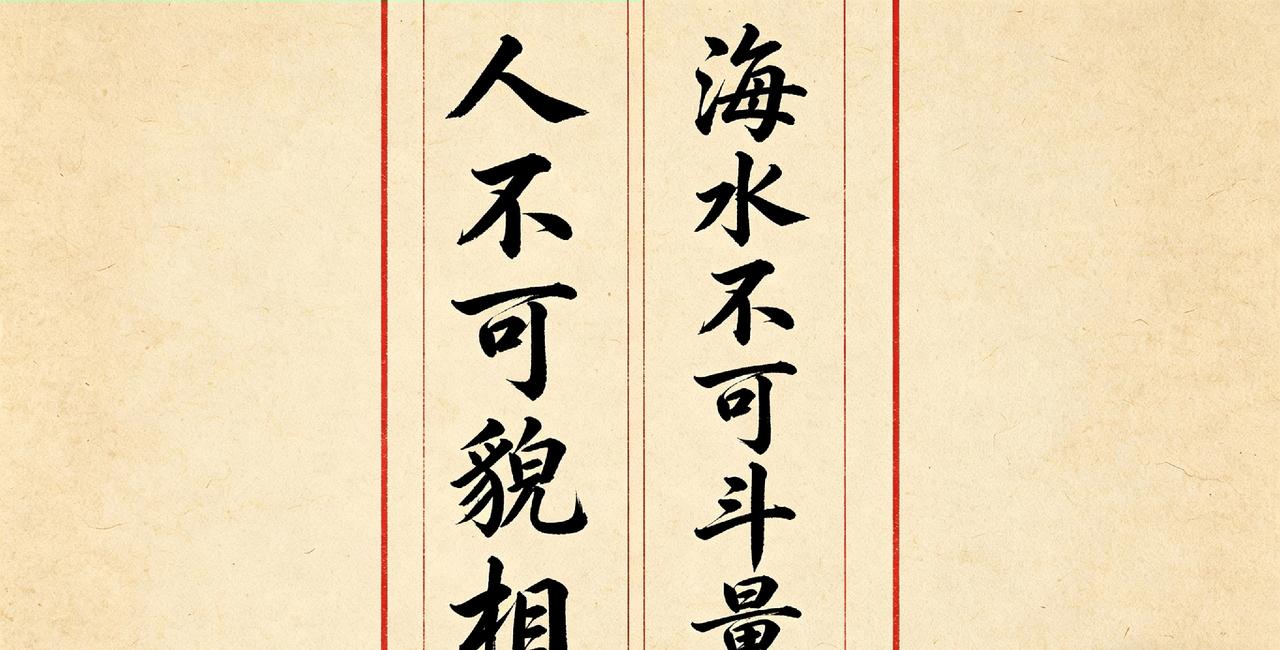 海水不可斗量
人不可貌相